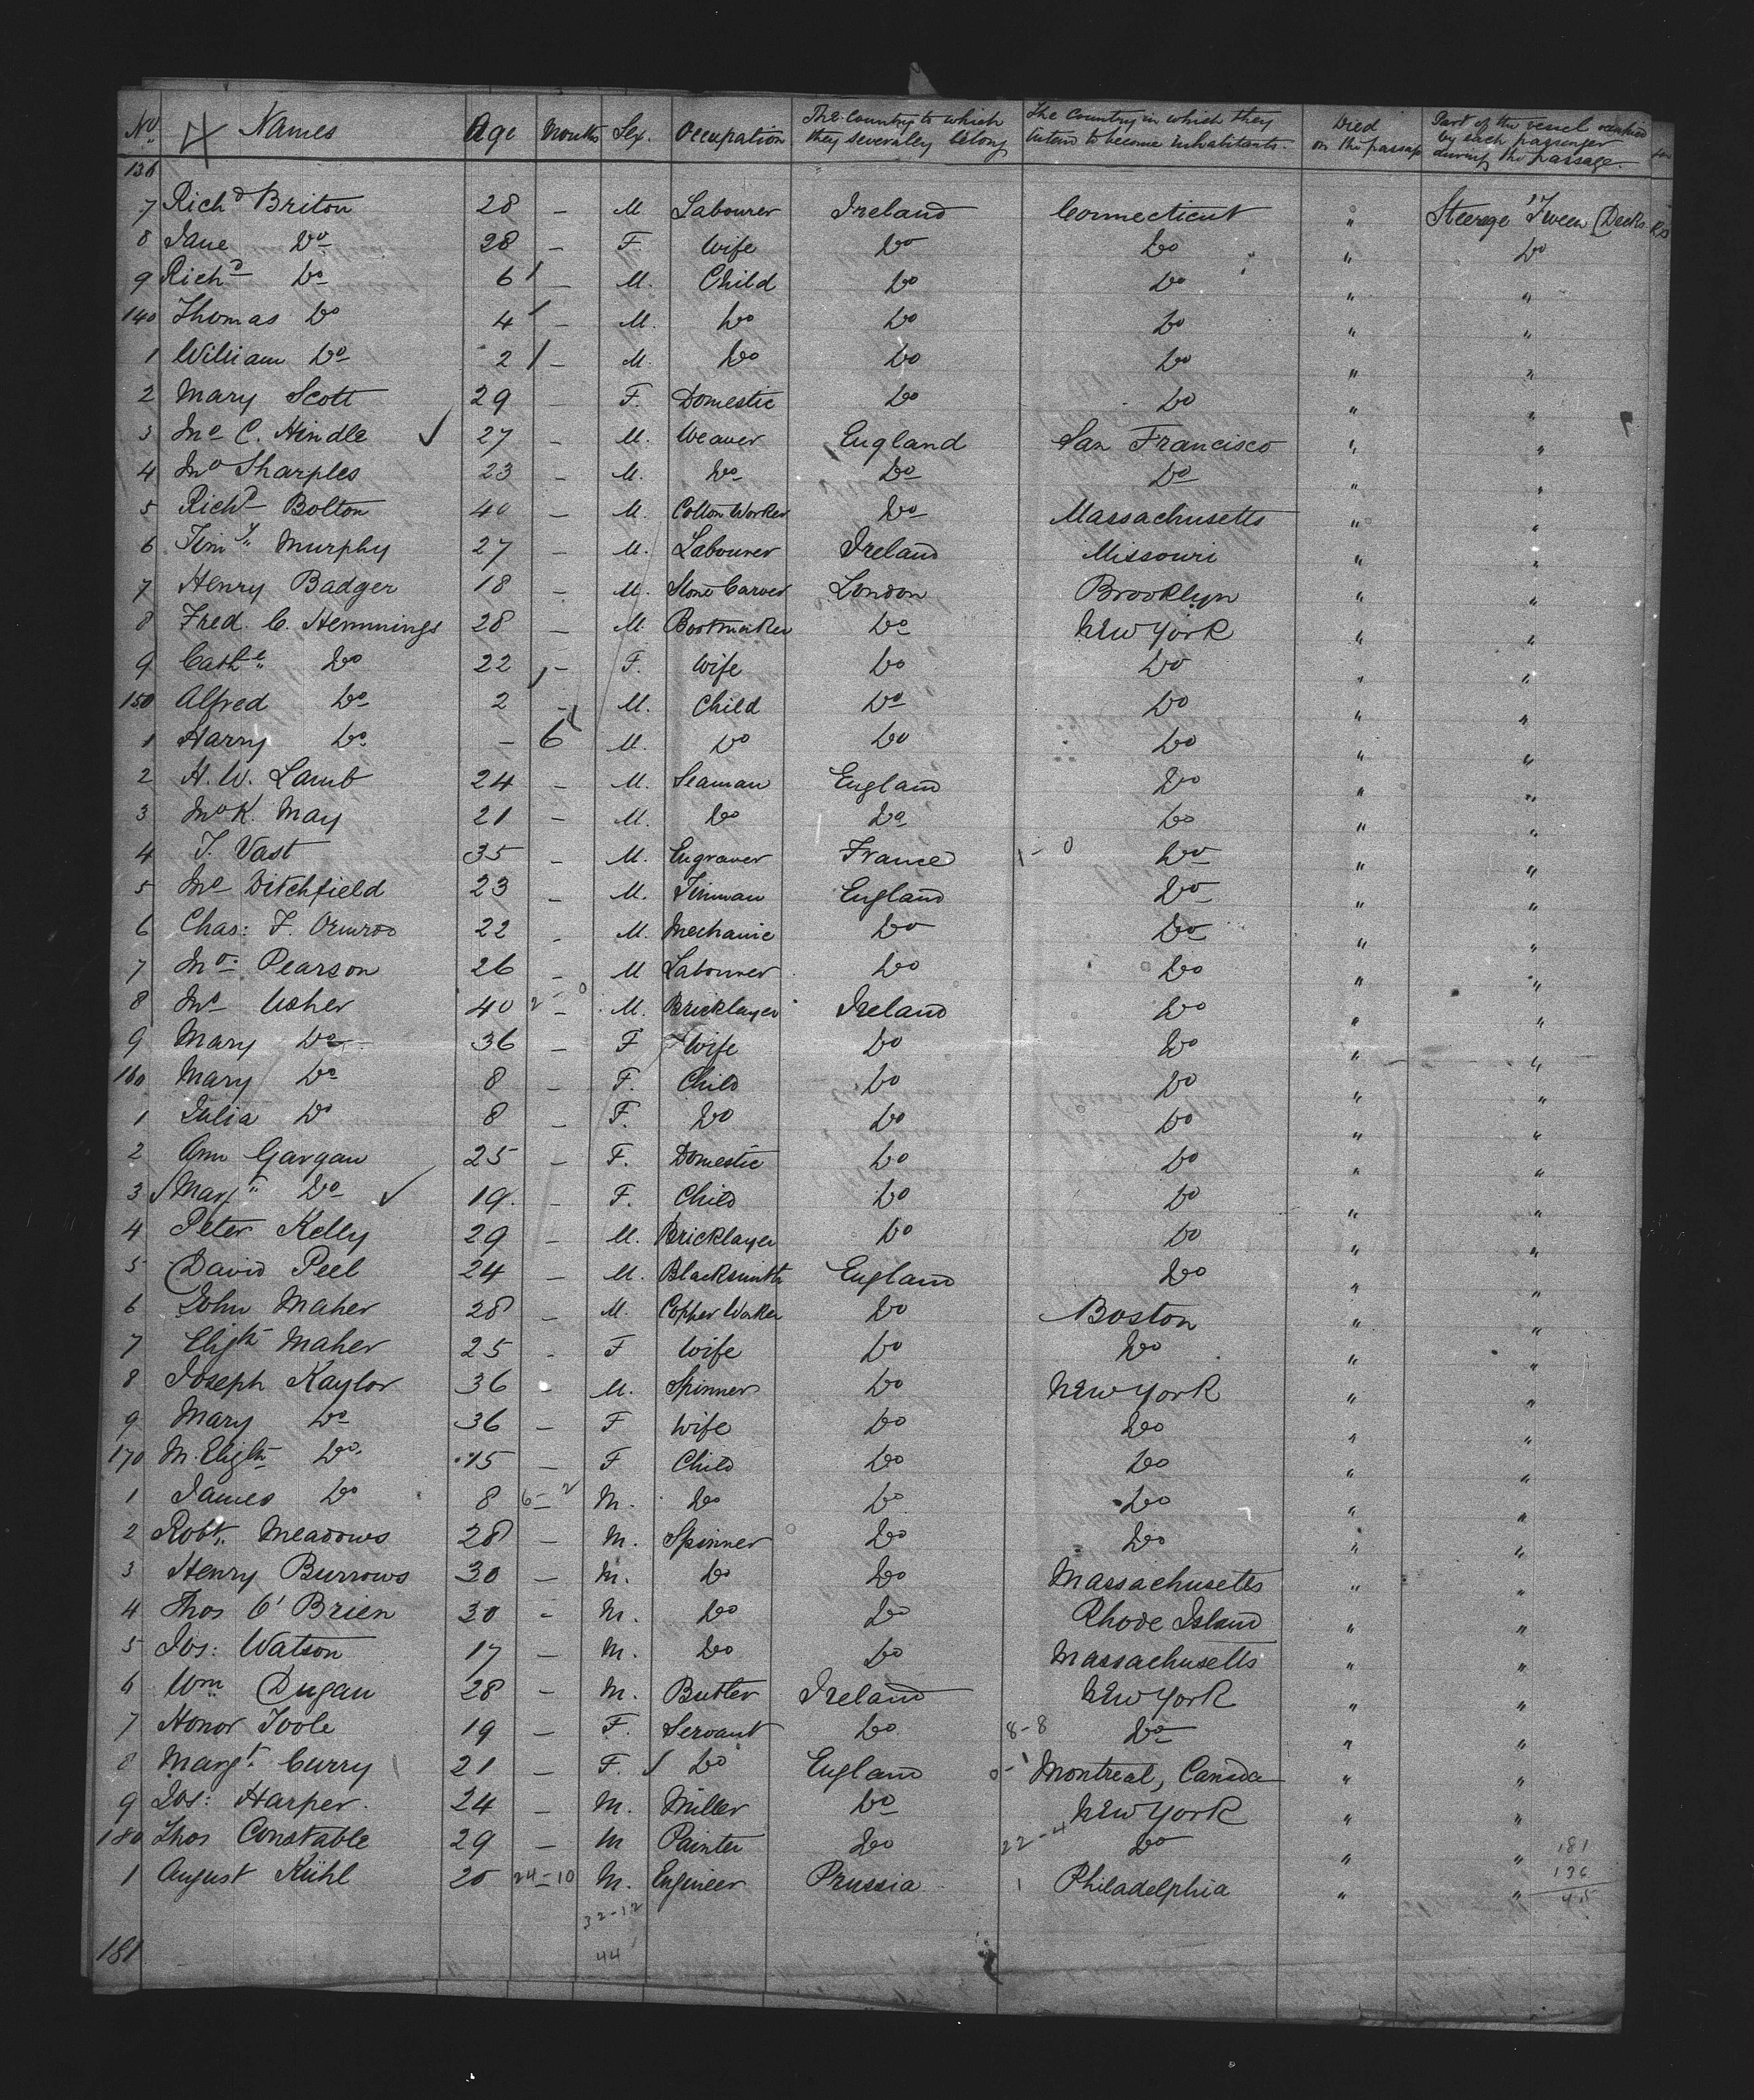 No 4 Names Age Months Sex. Occupation The Country to which they severaley belong The Country in which they intend to become inhabitants. Died on the passage Part of the vessel occupied by each passenger during the passage.
136
7 Richd Briton 28 – M Labourer Ireland Connecticut " Steerage 'Tween Decks
8 Jane Do 28 – F. Wife Do Do " Do
9 Richd Do 6 – M. Child Do Do " "
140 Thomas Do 4 – M. Do Do Do " "
1 William Do 2 – M. Do Do Do " "
2 Mary Scott 29 – F. Domestic Do Do " "
3 Jno C. Hindle ✓ 27 – M. Weaver England San Francisco " "
4 Jno Sharples 23 – M. Do Do Do " "
5 Richd Bolton 40 – M. Cotton Worker Do Massachusetts " "
6 Timy Murphy 27 – M. Labourer Ireland Missouri " "
7 Henry Badger 18 – M. Stone Carver London Brooklyn " "
8 Fred. C. Hemmings 28 – M Bootmaker Do New York " "
9 Cathe Do 22 – F. Wife Do Do " "
150 Alfred Do 2 – M. Child Do Do " "
1 Harry Do – 6 M. Do Do Do " "
2 H. W. Lamb 24 – M. Seaman England Do " "
3 Jno K. May 21 – M. Do Do Do " "
4 J. Vast 35 – M. Engraver France 1 - 0 Do " "
5 Jno Ditchfield 23 – M. Tinman England Do " "
6 Chas: F. Ormrod 22 – M. Mechanic Do Do " "
7 Jno Pearson 26 – M Labourer Do Do " "
8 Jno Usher 40 2 – 0 M. Bricklayer Ireland Do " "
9 Mary Do 36 – F Wife Do Do " "
160 Mary Do 8 – F. Child Do Do " "
1 Julia Do 8 – F. Do Do Do " "
2 Ann Gargan 25 – F. Domestic Do Do " "
3 Margt Do ✓ 19. – F. Child Do Do " "
4 Peter Kelly 29 – M. Bricklayer Do Do " "
5 David Peel 24 – M. Blacksmith England Do " "
6 John Maher 28 – M. Copper Worker Do Boston " "
7 Elizth Maher 25 – F Wife Do Do " "
8 Joseph Kaylor 36 – M. Spinner Do New York " "
9 Mary Do 36 – F Wife Do Do " "
170 M. Elizth Do 15 – F Child Do Do " "
1 James Do 8 6 – 2 M. Do Do Do " "
2 Robt. Meadows 28 – M. Spinner Do Do " "
3 Henry Burrows 30 – M. Do Do Massachusetts " "
4 Thos O'Brien 30 – M. Do Do Rhode Island " "
5 Jos: Watson 17 – M. Do Do Massachusetts " "
6 Wm Dugan 28 – M. Butler Ireland New York " "
7 Honor Toole 19 – F. Servant Do 8-8 Do " "
8 Margt. Curry 21 – F. Do England 0-1 Montreal, Canada " "
9 Jos: Harper. 24 – M. Miller Do New York " "
180 Thos Constable 29 – M Painter Do 22-4 Do " " 181
1 August Kühl 20 24-10 M. Engineer Prussia 1 Philadelphia " " 136
45
32-12
181 44